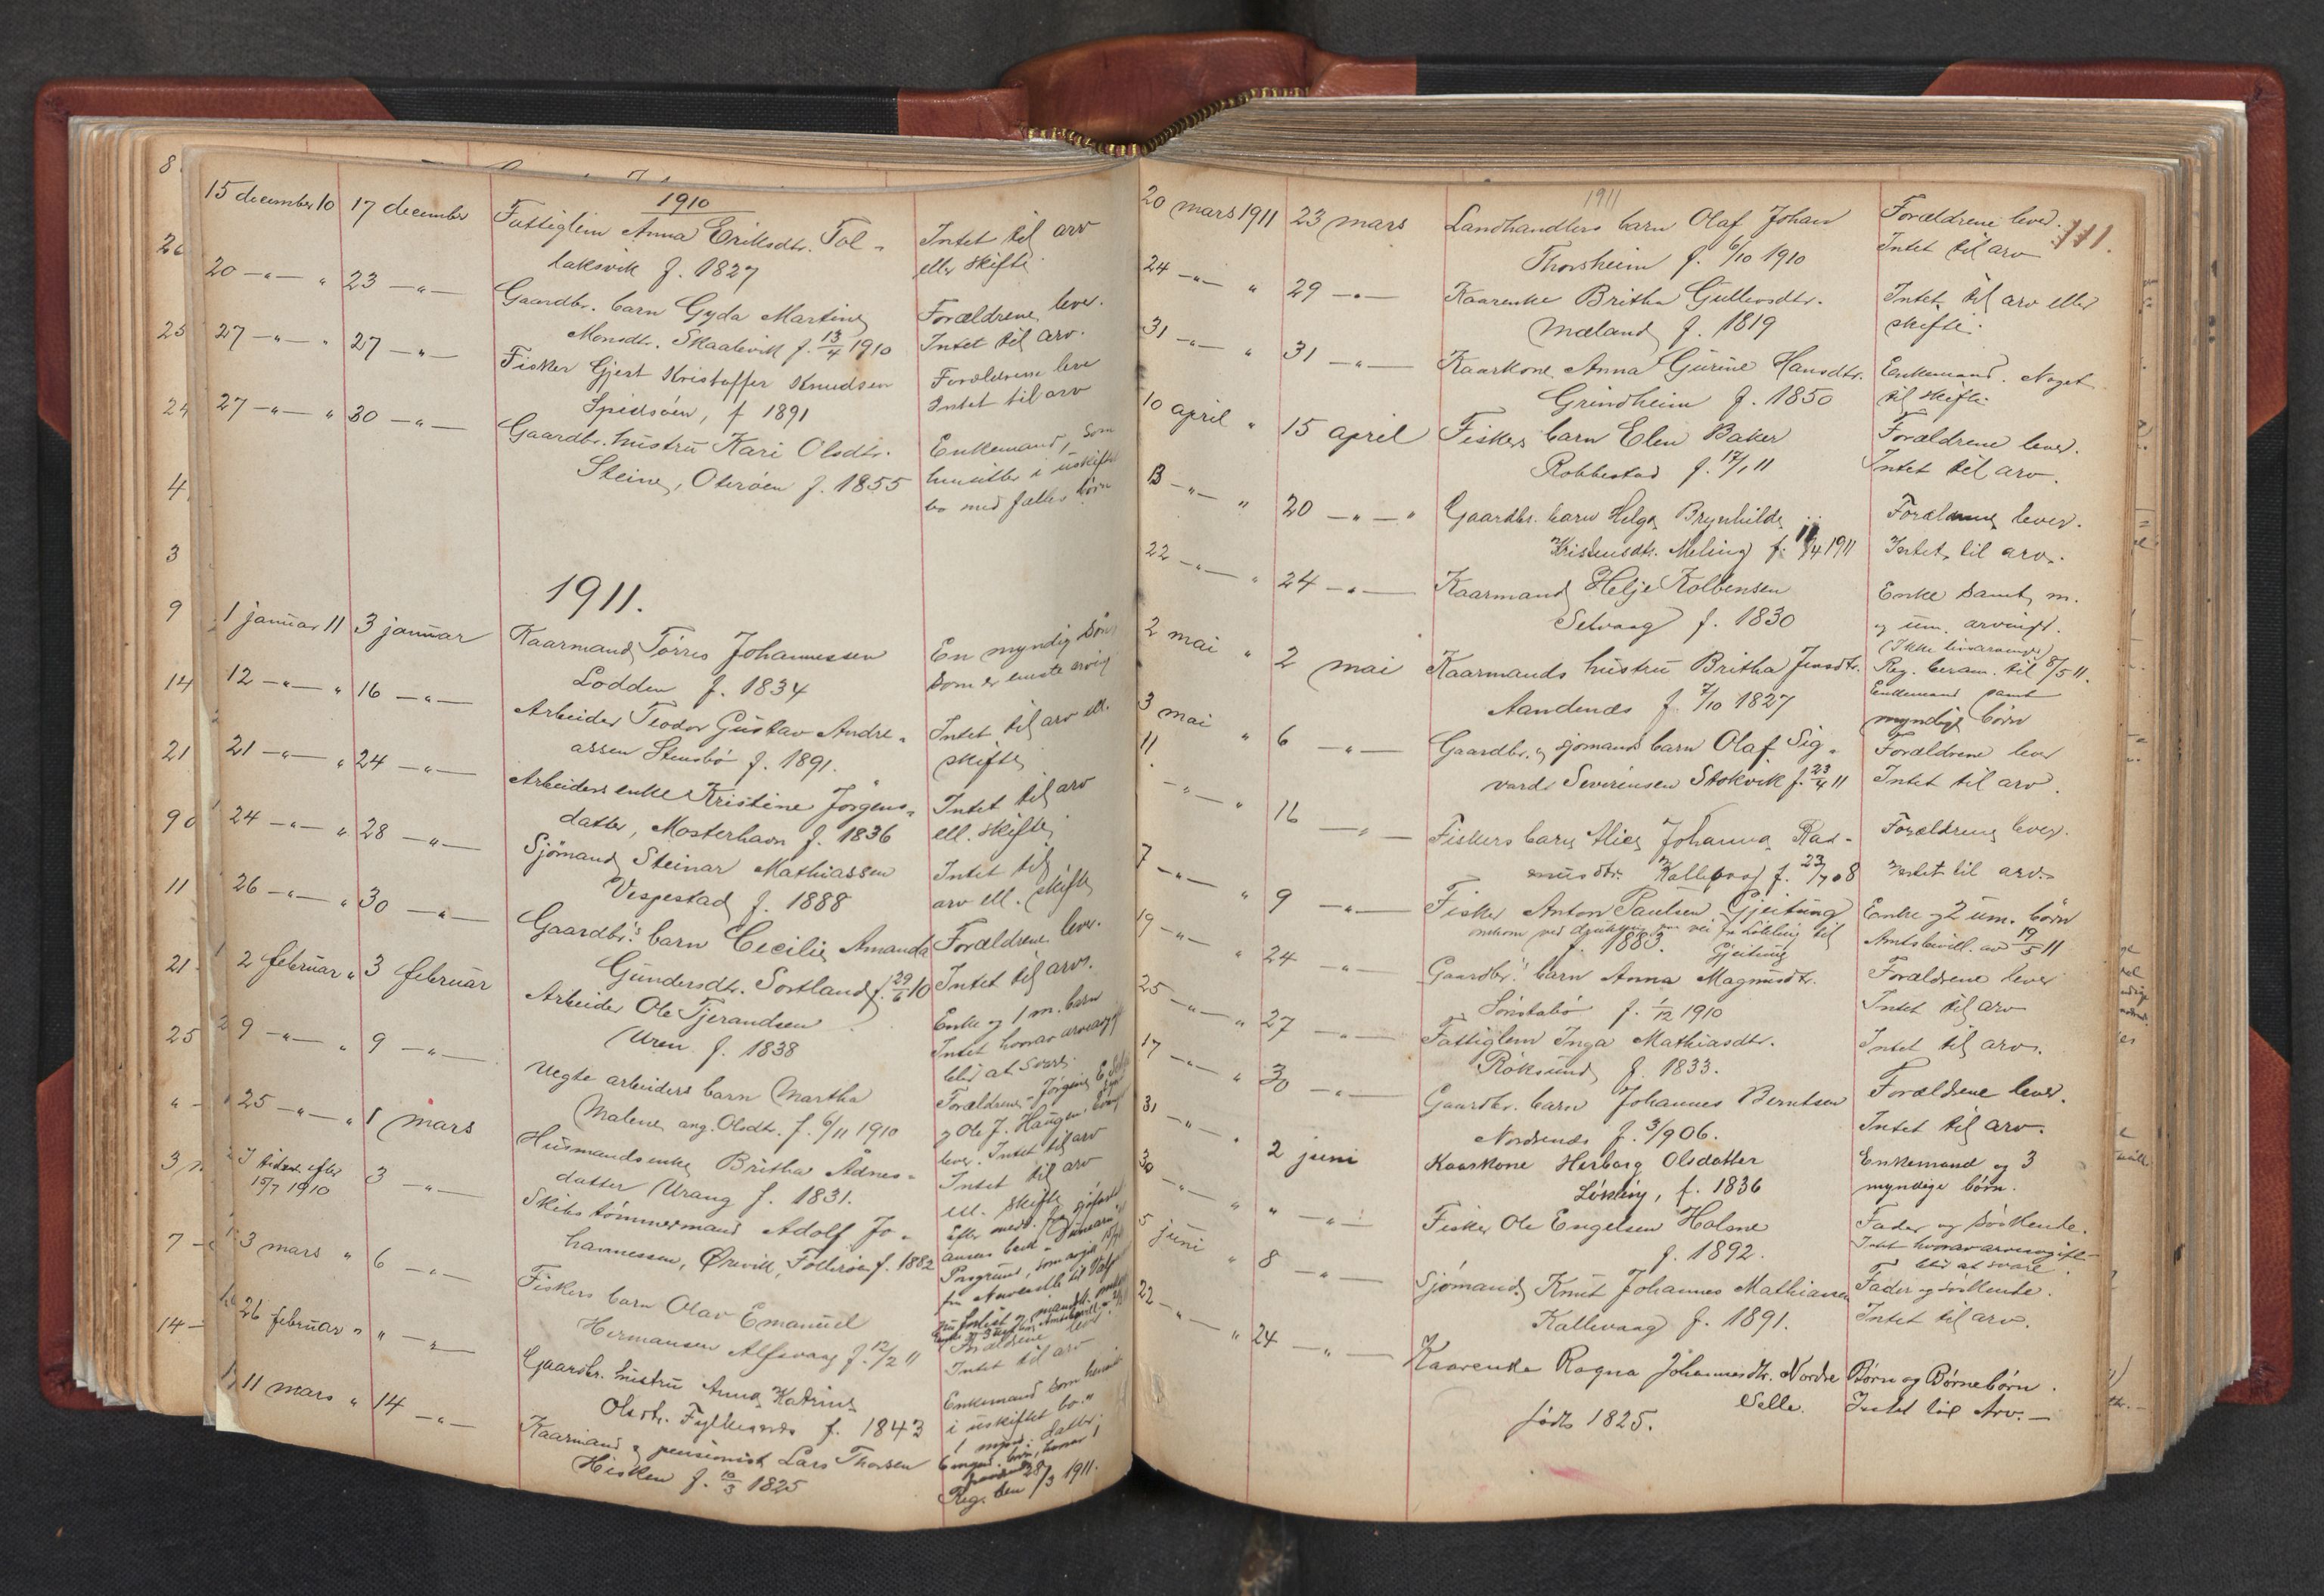 1910
15 december 10 17 december Fattiglem Anna Eriksdtr. Tol- Intet til arv
laksvik f. 1827 eller skifte.
20 —"— " 23 —"— Gaardbr. barn Gyda Martine Forældrene lever.
Monsdtr. Skaalevik f. 13/4 1910 Intet til arv.
27 —"— " 27 —"— Fisker Gjert Kristoffer Knudsen Forældrene leve
Spidsøen, f 1891 Intet til arv
27 —"— " 30 —"— Gaardbr. hustru Kari Olsdtr. Enkemand, som
Steine, Oterøen f. 1855 hensitter i uskiftet
bo med fælles børn
1911.
1 januar 11 3 januar Kaarmand Tørres Johannessen En myndig søn
Lodden f. 1834 som er eneste arving
12 —"— " 16 —"— Arbeider Teodor Gustav Andre- Intet til arv ell.
assen Stensbø f. 1891. skifte
21 —"— " 24 —"— Arbeiders enke Kristine Jørgens- Intet til arv
datter, Mosterhavn f. 1836 ell. skifte
24 —"— " 28 —"— Sjømand Steinar Mathiassen Intet til
Vespestad f. 1888 arv ell. skifte
26 —"— " 30 —"— Gaardbr.s barn Cecilie Amanda Forældrene lever.
Gundersdtr. Sortland f. 29/6 10 Intet til arv.
2 februar " 3 februar Arbeider Ole Tjerandsen Enke og 1 m. barn
Uren f. 1838 Intet hvorav arveavgift
blir at svare.
9 —"— " 9 —"— Uegte arbeiders barn Martha Forældrene - Jørgine E.
Malene ang. Olsdtr. f. 6/11 1910 og Ole J. Haugen,
lever. Intet til arv
25 —"— " 1 mars Husmandsenke Britha Ådnes- Intet til arv
datter Urang f. 1831. ell. skifte
I tiden efter 3 —"— Skibstømmermand Adolf Jo- Efter medd. fra sjøfarts
15/7 1910 hannessen, Ørevik, Follerøen f. 1882
Porsgrund, som avgik 15/7
fra Newcastle til Valp
3 mars " 6 —"— Fiskers barn Olav Emanuel Forældrene lever.
Hermansen Alfsvaag f. 12/2 11 Intet til arv
26 februar " " —"— Gaardbr. hustru Anna Katrine Enkemand som hensit
Olsdtr. Fylkesnes f. 1843 i uskiftet bo."
1 mynd. datter.
11 mars " 14 —"— Kaarmand & pensionist Lars Thorsen
Hisken f. 10/3 1825
Reg. den 28/3 1911.
1911
111.
20 mars 1911 23 mars Landhandlers barn Olaf Johan Forældrene lever.
Thorsheim f. 6/10 1910 Intet til arv
24 —"— " 29 —"— Kaarenke Britha Gullevsdtr. Intet til arv eller
Mæland f. 1819 skifte.
31 —"— " 31 —"— Kaarkone Anna Gurine Hansdtr. Enkemand. Noget
Grindheim f. 1850 til skifte.
10 april " 15 april Fiskers barn Elen Baker Forældrene lever.
Robbestad f. 17/1 11 Intet til arv.
13 —"— " 20 —"— " Gaardbr. barn Helga Brynhilde Forældrene lever.
Kristensdtr. Meling f. 11/4 1911 Intet til arv.
22 —"— " 24 —"— Kaarmand Helje Kolbensen Enke samt m.
Selvaag f. 1830 og um. arvinger.
(Ikke livsarvinger)
Reg. beram. til 8/5 11.
2 mai " 2 mai Kaarmands hustru Britha Jensdtr. Enkemand samt
Aandenæs f. 7/10 1827 myndige børn
3 mai " 6 —"— Gaardbr. & sjømands barn Olaf Sig- Forældrene lever
vard Severinsen Stokvik f. 23/4 11 Intet til arv.
11. —"— " 16 —"— Fiskers barn Alice Johanna Ras- Forældrene lever.
musdtr. Kallevaag f. 23/7 08 Intet til arv.
7 —"— " 9 —"— Fisker Anton Paulsen Gjeitung Enke og 2 um. børn
omkom ved drukning paa vei fra Løkling til
f. 1883. Gjeitung Amtsbevill. av 19/5 11
19 —"— " 24 —"— Gaardbr.s barn Anna Magnusdtr. Forældrene lever
Sønstabø f. 1/12 1910 Intet til arv
25 —"— " 27 —"— Fattiglem Inga Mathiasdtr. Intet til arv.
Røksund f. 1833.
17 —"— " 30 —"— Gaardbr. barn Johannes Berntsen Forældrene lever.
Nordenæs f. 3/9 06. Intet til arv.
31 —"— " 2 juni Kaarkone Herborg Olsdatter Enkemand og 3
Løkling, f. 1836 myndige børn.
30 —"— " " —"— Fisker Ole Engelsen Holme Fader og søskende.
f. 1892. Intet hvorav arveavgift
blir at svare.
5 juni " 8 —"— Sjømand Knut Johannes Mathiasen Fader og søskende.
Kallevaag f. 1891. Intet til arv.
22 —"— " 24 —"— Kaarenke Ragna Johannesdtr. Nordre Børn og Børnebørn.
Selle. Intet til Arv.—
født 1825.